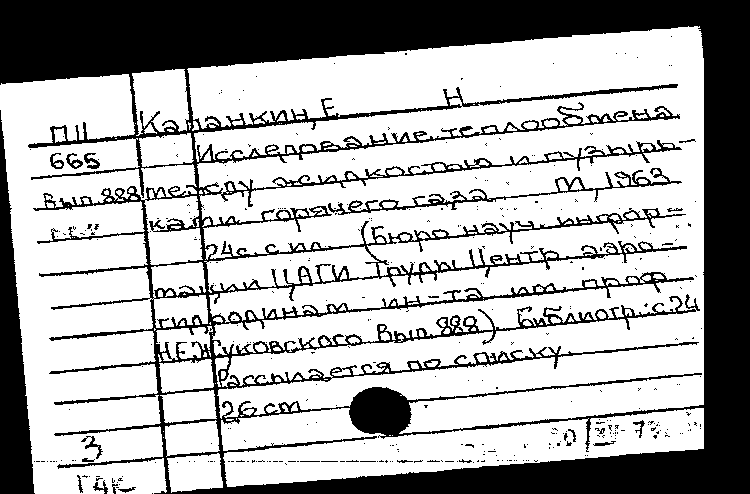 П11 Капанкин, Е Н
665 Исследование теплообмена
Вып. 888 между жидкостью и пузырь-
ками горячего газа М, 1963
24с. с ил. (Бюро науч. инфор=
мации ЦАГИ Труды Центр. аэро=
гидродинам ин=та им. проф.
Н.Е.Жуковского Вып. 888) Библиогр.: с.24
Рассылается по списку.
26 cm
3
ГАК